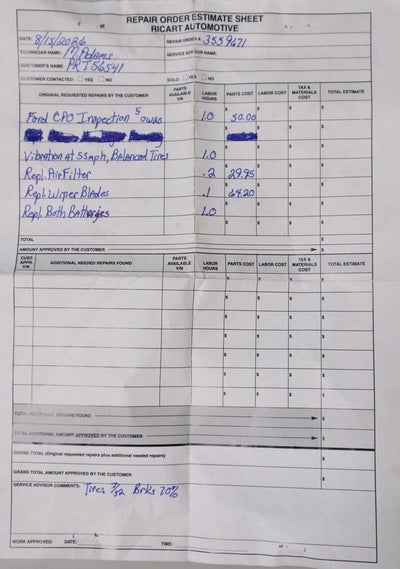 REPAIR ORDER ESTIMATE SHEET
RICART AUTOMOTIVE
DATE: 8/15/2026 REPAIR ORDER #: 3559671
TECHNICIAN NAME: M. Adams SERVICE ADVISOR NAME:
CUSTOMER'S NAME: PRT56541
CUSTOMER CONTACTED: YES NO SOLD: YES NO
ORIGINAL REQUESTED REPAIRS BY THE CUSTOMER PARTS AVAILABLE Y/N LABOR HOURS PARTS COST LABOR COST TAX & MATERIALS COST TOTAL ESTIMATE
Ford CPO Inspection 1.0 $ 50.00 $ $ $
$ $ $ $
Vibration at 55mph, Balanced Tires 1.0 $ $ $ $
Repl. Air Filter .2 $ 29.95 $ $ $
Repl. Wiper Blades .1 $ 64.20 $ $ $
Repl. Both Batteries 1.0 $ $ $ $
TOTAL
AMOUNT APPROVED BY THE CUSTOMER $
CUST. APPR. Y/N ADDITIONAL NEEDED REPAIRS FOUND PARTS AVAILABLE Y/N LABOR HOURS PARTS COST LABOR COST TAX & MATERIALS COST TOTAL ESTIMATE
$ $ $ $
$ $ $ $
$ $ $ $
$ $ $ $
$ $ $ $
$ $ $ $
TOTAL ADDITIONAL REPAIRS FOUND $
TOTAL ADDITIONAL AMOUNT APPROVED BY THE CUSTOMER $
GRAND TOTAL (Original requested repairs plus additional needed repairs) $
GRAND TOTAL AMOUNT APPROVED BY THE CUSTOMER $
SERVICE ADVISOR COMMENTS: Tires 7/32 Brks 70%
WORK APPROVED: DATE: TIME: